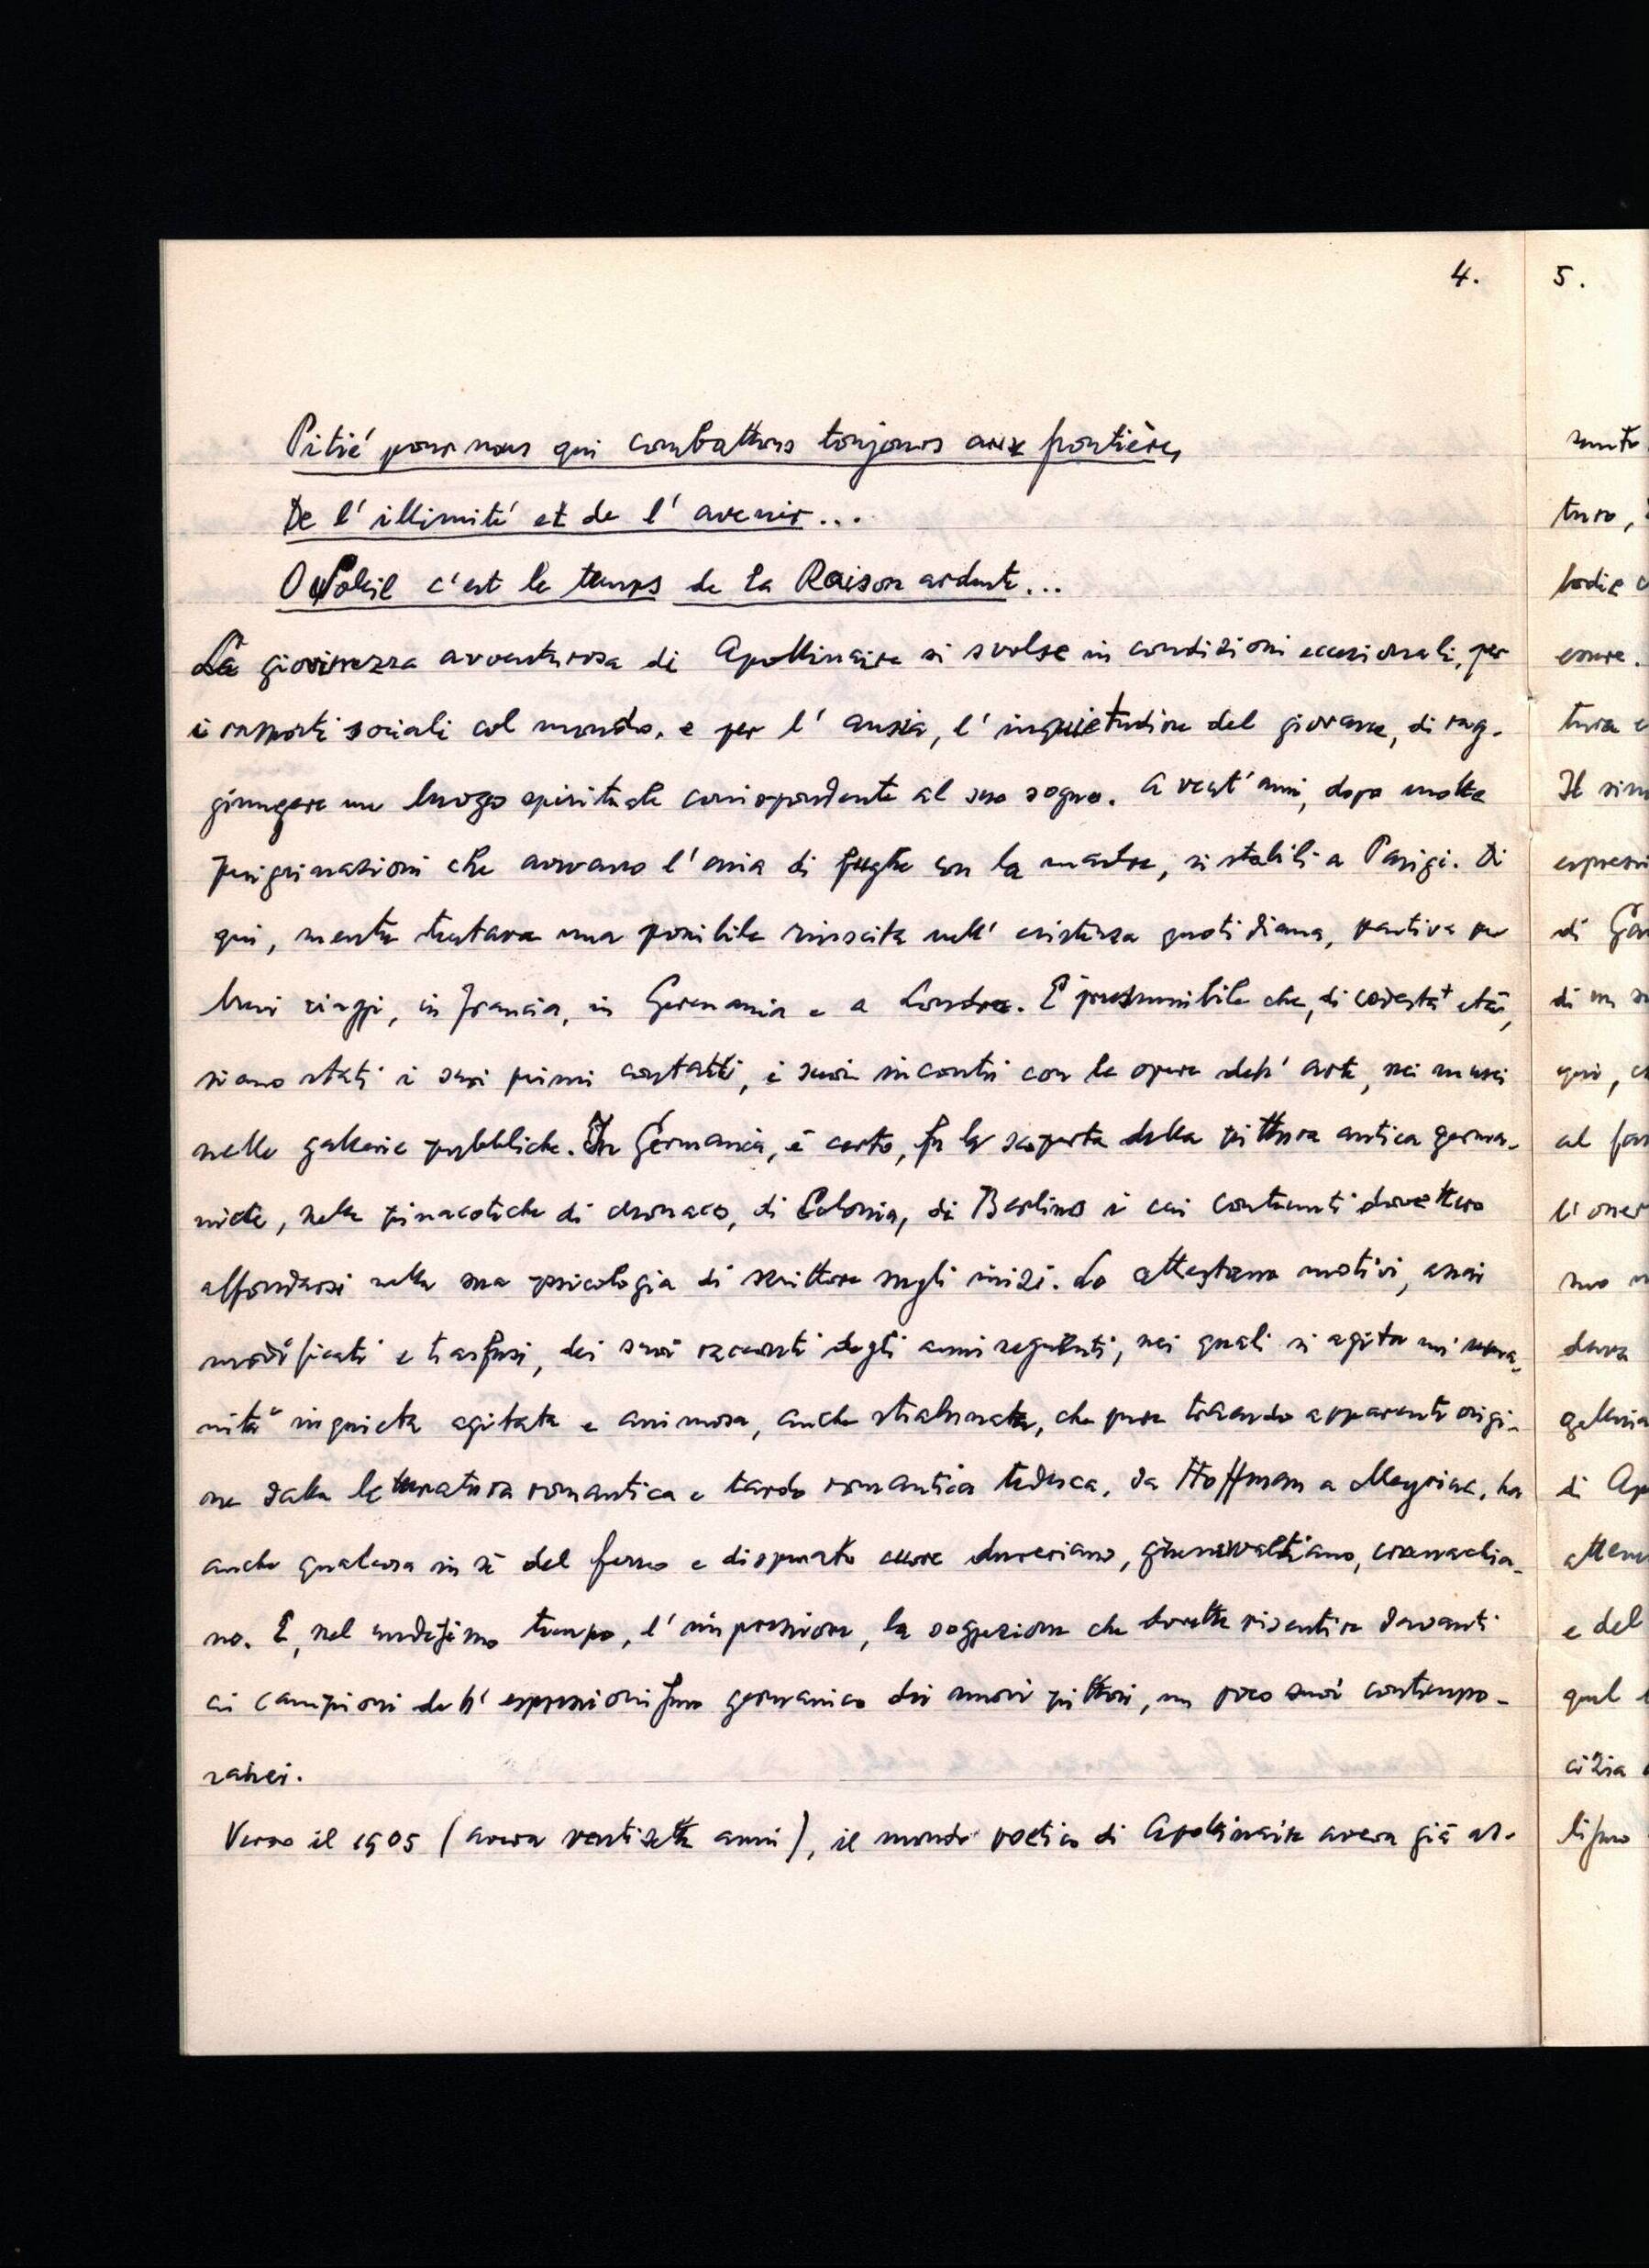 4.
Pitié pour nous qui combattons toujours aux frontières
De l'illimité et de l'avenir...
O Soleil c'est le temps de la Raison ardente...
La giovinezza avventurosa di Apollinaire si svolse in condizioni eccezionali, per
i rapporti sociali col mondo, e per l'ansia, l'inquietudine del giovane, di rag-
giungere un luogo spirituale corrispondente al suo sogno. A vent'anni, dopo molte
perigrinazioni che avevano l'aria di fughe con la madre, si stabilì a Parigi. Di
qui, mentre tentava una possibile riuscita nell'esistenza quotidiana, partiva per
brevi viaggi, in Francia, in Germania e a Londra. È presumibile che, di codesta età,
siano stati i suoi primi contatti, i suoi incontri con le opere dell'arte, nei musei
nelle gallerie pubbliche. In Germania, è certo, fu la scoperta della pittura antica germa-
nica, nelle pinacoteche di Monaco, di Colonia, di Berlino i cui contenuti dovettero
affondarsi nella sua psicologia di scrittore sugli inizi. Lo attestano motivi, assai
modificati e trasfusi, dei suoi racconti degli anni seguenti, nei quali si agita un'uma-
nità inquieta agitata e animosa, anche stralunata, che pure traendo apparente origi-
ne dalla letteratura romantica e tardo romantica tedesca, da Hoffmann a Meyrink, ha
anche qualcosa in sé del fermo e disperato cuore dureriano, grunewaldiano, cranachia-
no. E, nel medesimo tempo, l'impressione, la soggezione che dovette risentire davanti
ai campioni dell'espressionismo germanico dei nuovi pittori, un poco suoi contempo-
ranei.
Verso il 1905 (aveva ventisette anni), il mondo poetico di Apollinaire aveva già as-
5.